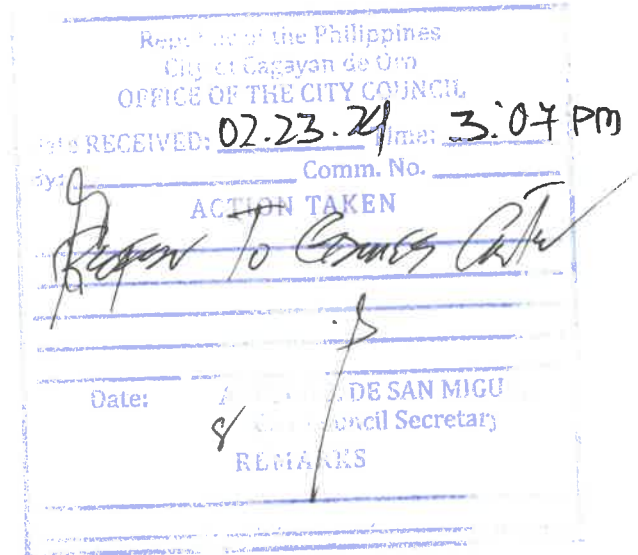 Republic of the Philippines
City of Cagayan de Oro
OFFICE OF THE CITY COUNCIL
Date RECEIVED: 02.23.24 Time: 3:07 PM
By: Comm. No.
ACTION TAKEN
To
Date: DE SAN MIGU
Council Secretary
REMARKS